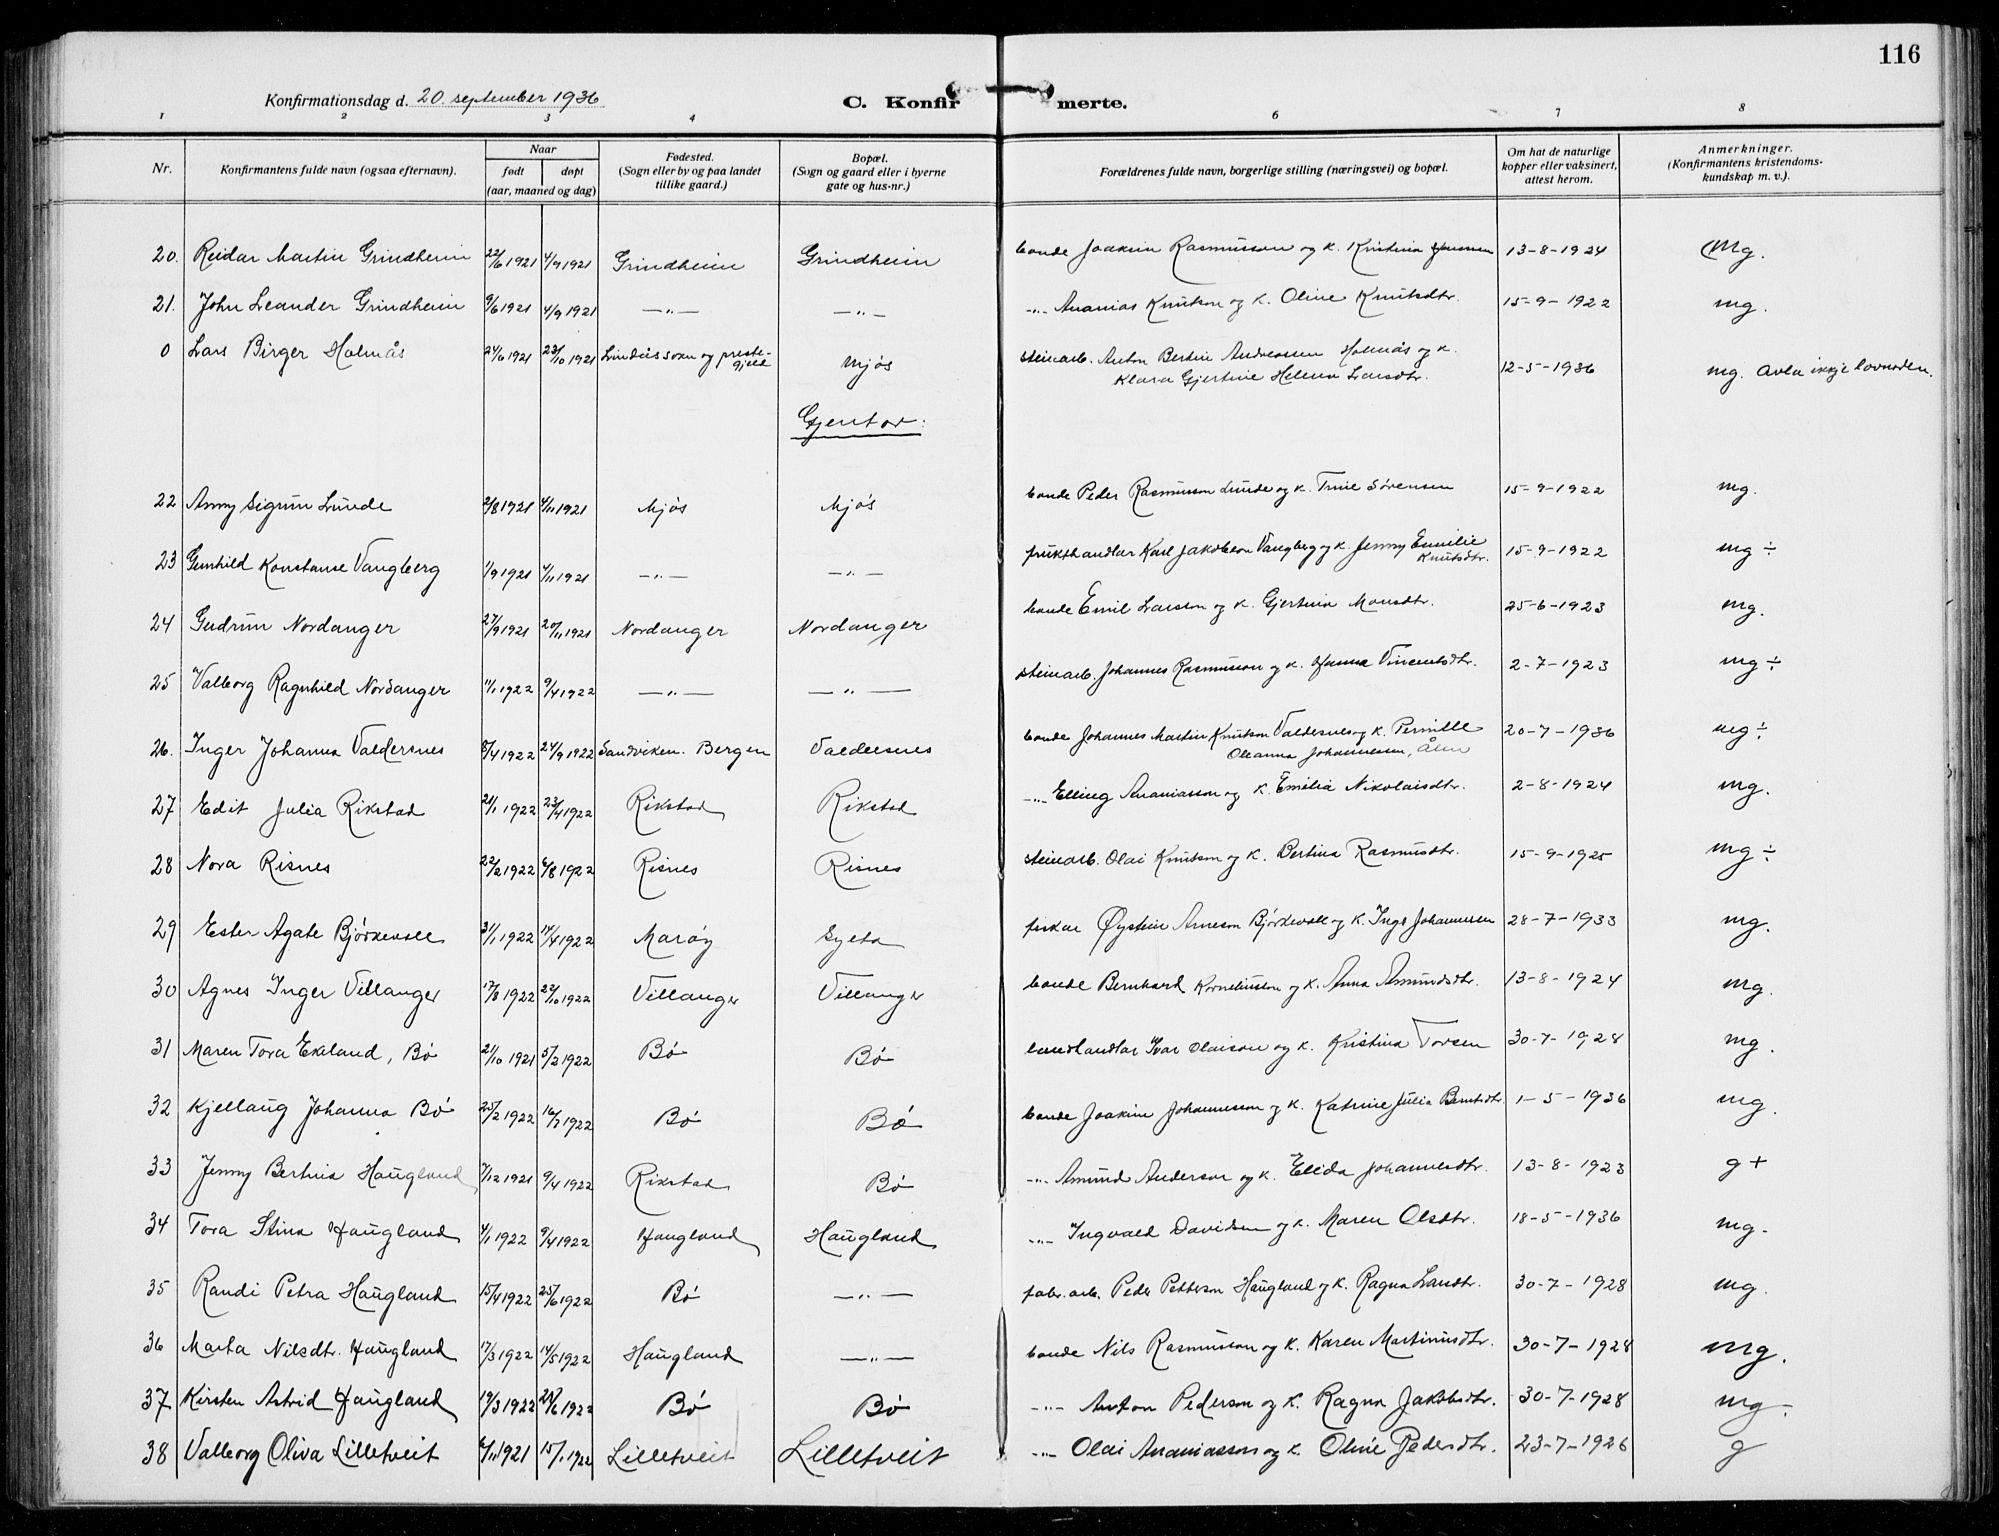 116
Konfirmationsdag d. 20. september 1936 C. Konfirmerte.
1 2 3 4 6 7 8
Nr. Konfirmantens fulde navn (ogsaa efternavn). Naar født døpt (aar, maaned og dag) Fødested. (Sogn eller by og paa landet tillike gaard.) Bopæl. (Sogn og gaard eller i byerne gate og hus-nr.) Forældrenes fulde navn, borgerlige stilling (næringsvei) og bopæl. Om hat de naturlige kopper eller vaksinert, attest herom. Anmerkninger. (Konfirmantens kristendoms-kundskap m. v.).
20. Reidar Martin Grindheim 22/6 1921 4/9 1921 Grindheim Grindheim bonde Joakim Rasmusson og k. Kristina Hansen 13-8-1924 mg.
21. John Leander Grindheim 9/6 1921 4/9 1921 —"— —"— —"— Ananias Knutson og k. Oline Knutsdtr. 15-9-1922 mg.
0 Lars Birger Holmås 24/6 1921 23/10 1921 Lindås sokn og preste-gjeld Mjøs steinarb. Anton Bertin Andreassen Holmås og k.
Klara Gjertine Helena Larsdtr. 12-5-1936 mg. Avla ikkje lovnaden.
Gjentor:
22 Anny Sigrun Lunde 2/8 1921 4/11 1921 Mjøs Mjøs bonde Peder Rasmusson Lunde og k. Trine Sørensen 15-9-1922 mg.
23 Gunhild Konstanse Vangberg 1/9 1921 4/11 1921 —"— —"— frukthandlar Karl Jakobson Vangberg og k. Jenny Emilie
Knutsdtr. 15-9-1922 mg ÷
24 Gudrun Nordanger 27/9 1921 20/11 1921 Nordanger Nordanger bonde Emil Larsson og k. Gjertina Monsdtr. 25-6-1923 mg.
25 Valborg Ragnhild Nordanger 11/1 1922 9/4 1922 —"— —"— steinarb. Johannes Rasmusson og k. Hanna Vincentsdtr. 2-7-1923 mg ÷
26. Inger Johanna Valdersnes 8/4 1922 24/9 1922 Sandviken. Bergen Valdersnes bonde Johannes Martin Knutson Valdersnes og k. Pernille
Oleanna Johannessen, 20-7-1936 mg ÷
27 Edit Julia Rikstad 21/1 1922 23/4 1922 Rikstad Rikstad —"— Elling Ananiasson og k. Emilia Nikolaisdtr. 2-8-1924 mg.
28 Nora Risnes 22/2 1922 6/8 1922 Risnes Risnes steinarb. Olai Knutson og k. Bertina Rasmusdtr. 15-9-1925 mg ÷
29 Ester Agate Bjørkevoll 31/1 1922 14/4 1922 Marøy Syltø fiskar Øystein Arneson Bjørkevoll og k. Inga Johannessen 28-7-1933 mg.
30 Agnes Inger Villanger 17/8 1922 22/10 1922 Villanger Villanger bonde Bernhard Korneliuson og k. Anna Amundsdtr. 13-8-1924 mg.
31 Maren Tora Ekeland, Bø 21/10 1921 5/2 1922 Bø Bø landhandlar Ivar Olaison og k. Kristina Torsen 30-7-1928 mg.
32 Kjellaug Johanna Bø 25/2 1922 16/7 1922 Bø Bø bonde Joakim Johannesson og k. Katrine Julia Berntsdtr. 1-5-1936 mg.
33 Jenny Bertina Haugland 7/12 1921 9/4 1922 Rikstad Bø —"— Amund Anderson og k. Elida Johannesdtr. 13-8-1923 g +
34 Tora Stina Haugland 4/1 1922 9/4 1922 Haugland Haugland —"— Ingvald Davidsen og k. Maren Olsdtr. 18-5-1936 mg.
35 Randi Petra Haugland 15/4 1922 25/6 1922 Bø —"— fabr.arb. Peder Petterson Haugland og k. Ragna Larsdtr. 30-7-1928 mg.
36 Marta Nilsdtr. Haugland 17/3 1922 14/5 1922 Haugland —"— bonde Nils Rasmusson og k. Karen Martinusdtr. 30-7-1928 mg.
37 Kirsten Astrid Haugland 19/3 1922 25/6 1922 Bø Bø —"— Anton Pederson og k. Ragna Jakobsdtr. 30-7-1928 mg.
38 Valborg Oliva Lilletveit 6/11 1921 15/1 1922 Lilletveit Lilletveit —"— Olai Ananiasson og k. Oline Pedersdtr. 23-7-1926 g